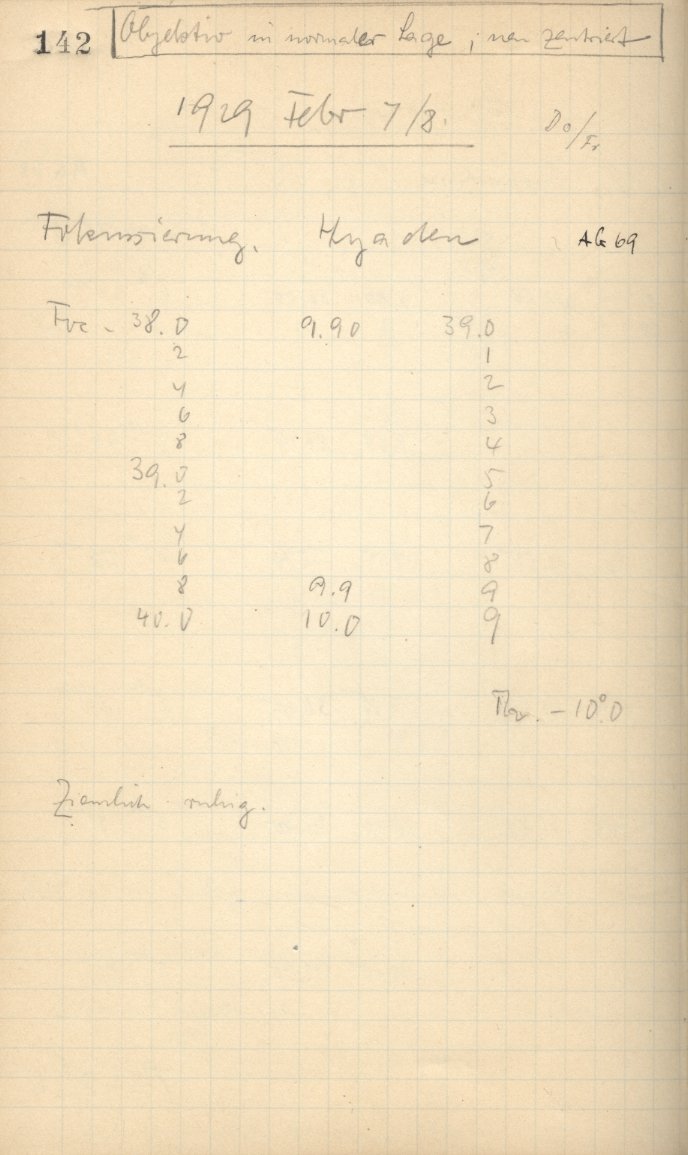 142 Objektiv in normaler Lage; neu zentriert
1929 Febr 7/8.
Do/Fr
Fokussierung. Hyaden AG 69
Foc. 38.0 9.90 39.0
2 1
4 2
6 3
8 4
39.0 5
2 6
4 7
6 8
8 9.9 9
40.0 10.0 9
Thr. -10°0
Ziemlich ruhig.